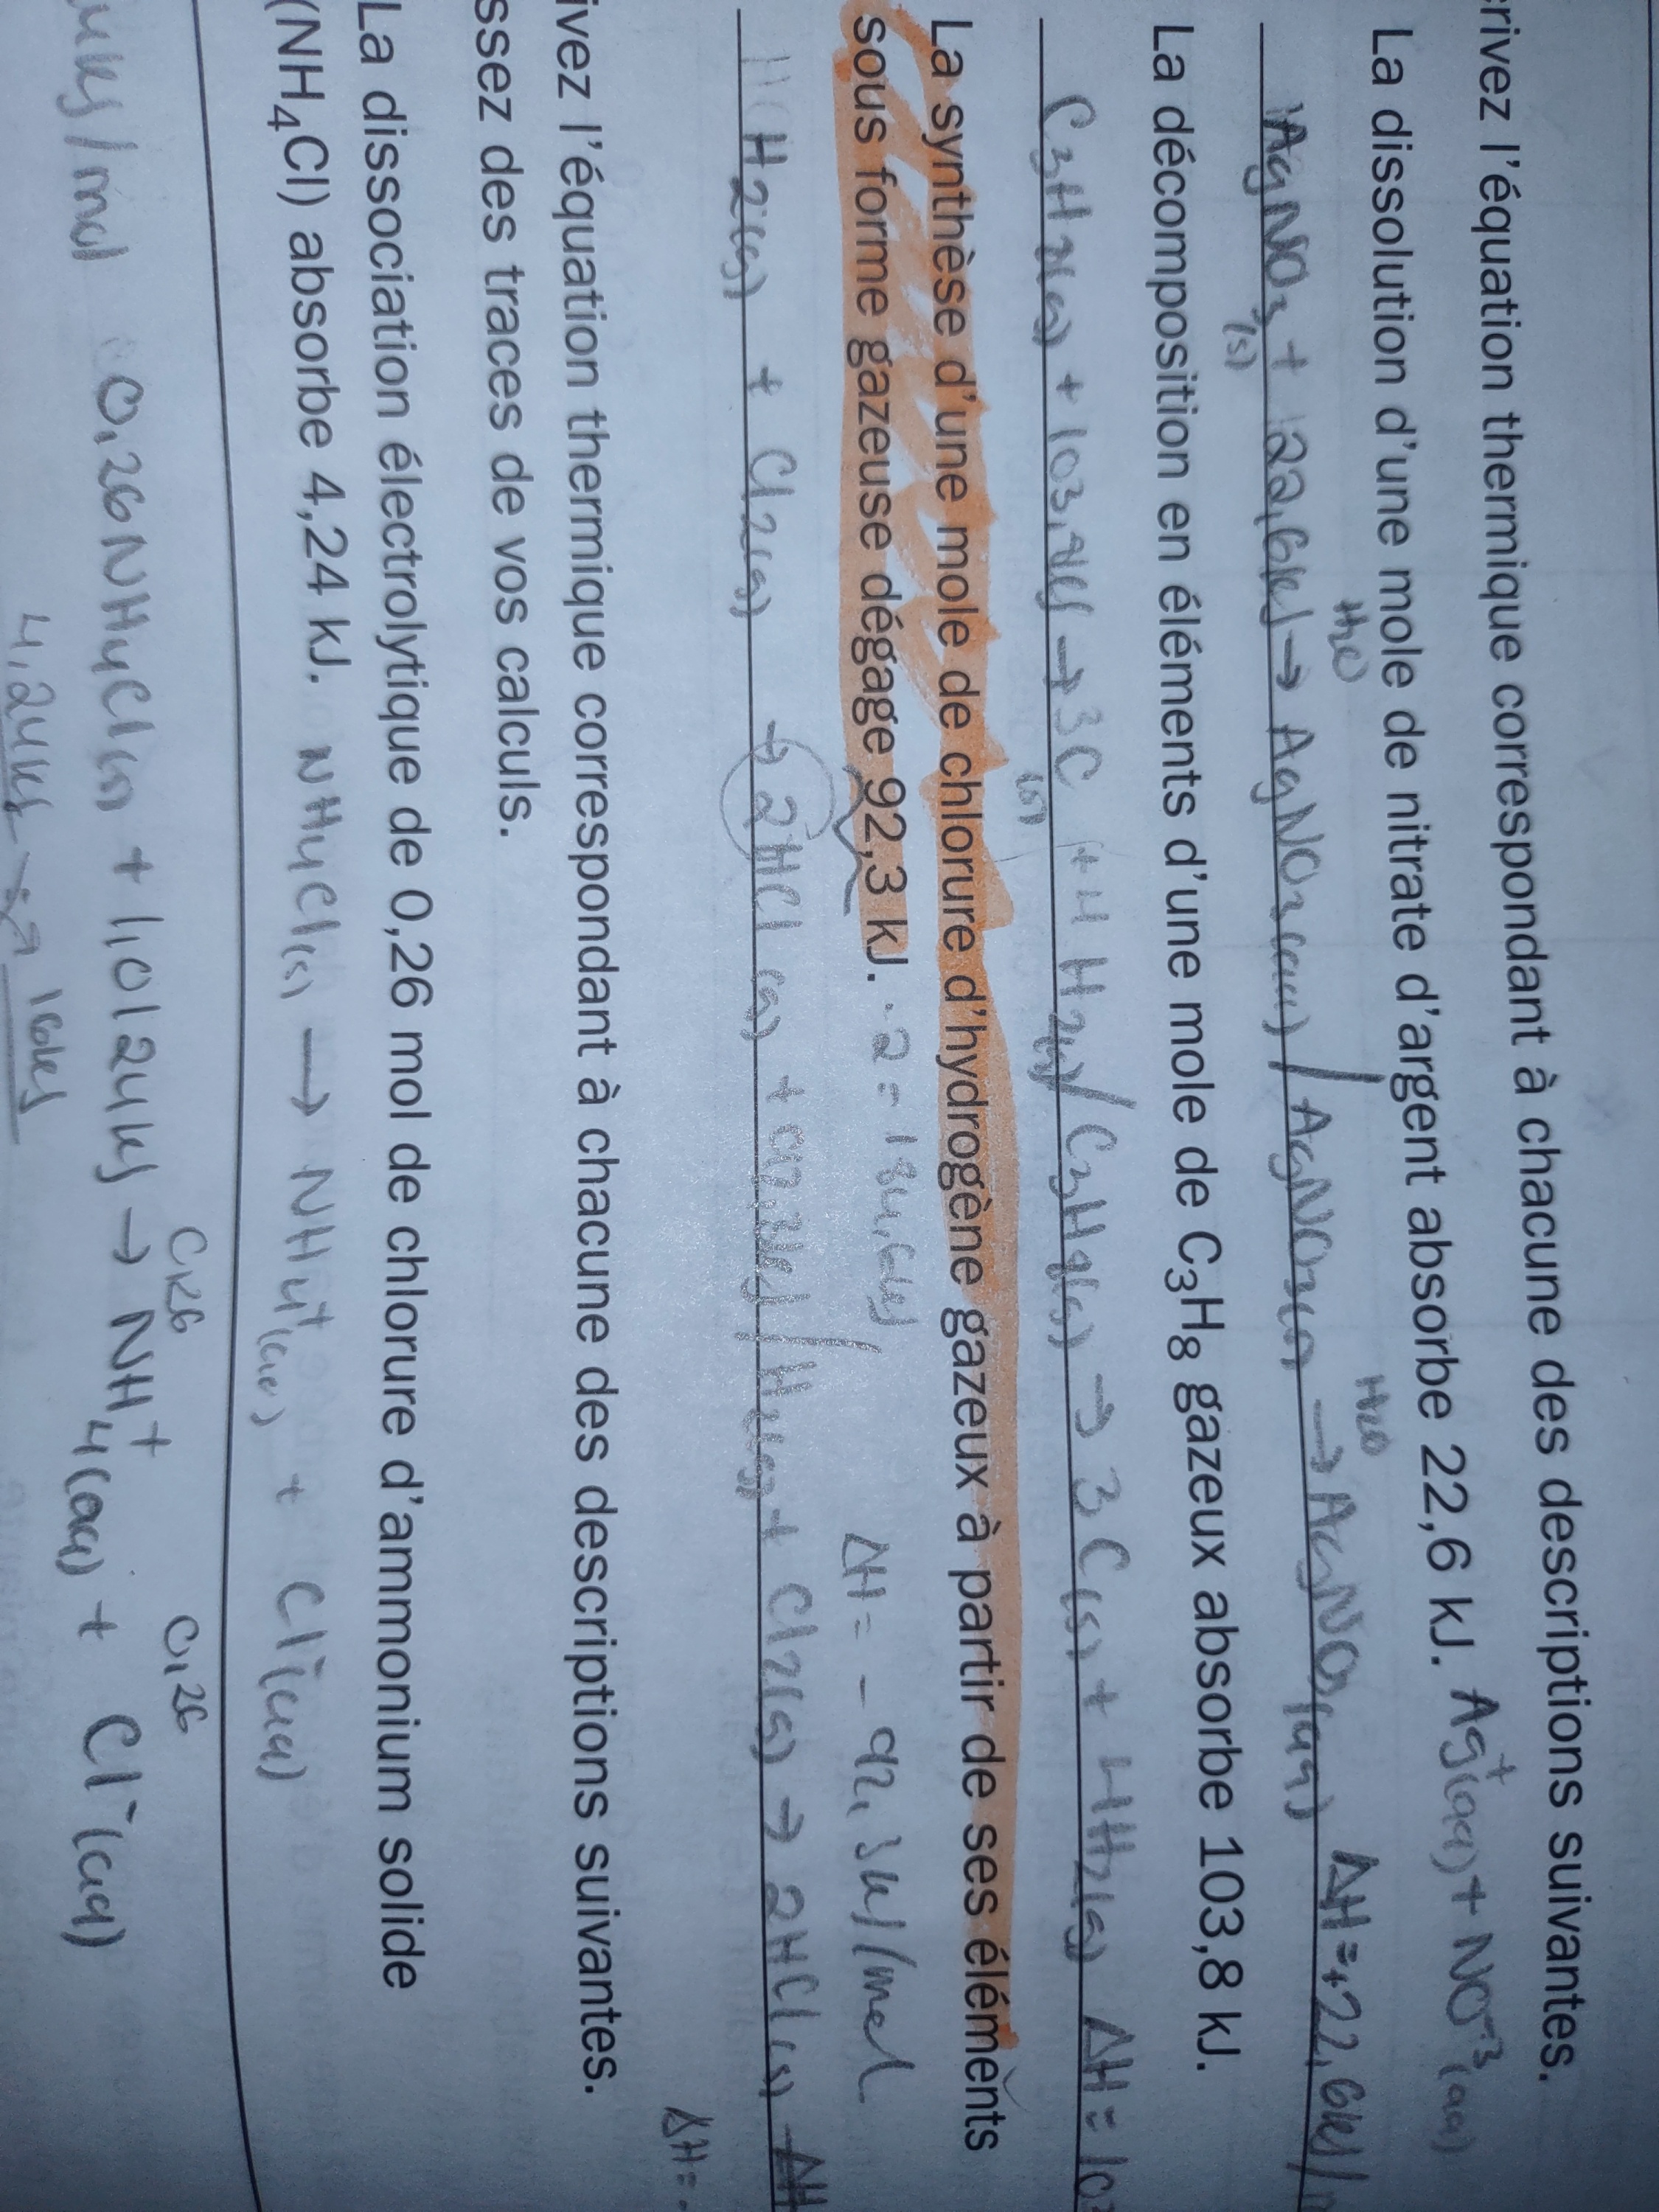 rivez l'équation thermique correspondant à chacune des descriptions suivantes.
La dissolution d'une mole de nitrate d'argent absorbe 22,6 kJ. Ag⁺(aq) + NO⁻₃(aq)
H₂O H₂O
1AgNO₃(s) + 22,6kJ → AgNO₃(aq) / AgNO₃(s) → AgNO₃(aq) ΔH = +22,6kJ/
La décomposition en éléments d'une mole de C₃H₈ gazeux absorbe 103,8 kJ.
C₃H₈(g) + 103,8kJ → 3C(s) + 4H₂(g) / C₃H₈(g) → 3C(s) + 4H₂(g) ΔH = 10
La synthèse d'une mole de chlorure d'hydrogène gazeux à partir de ses éléments
sous forme gazeuse dégage 92,3 kJ. · 2 = 184,6kJ ΔH = - 92,3kJ/mol
H₂(g) + Cl₂(g) → 2HCl(g) + / H₂(g) + Cl₂(g) → 2HCl(g) ΔH
ΔH = -
ivez l'équation thermique correspondant à chacune des descriptions suivantes.
ssez des traces de vos calculs.
La dissociation électrolytique de 0,26 mol de chlorure d'ammonium solide
(NH₄Cl) absorbe 4,24 kJ. NH₄Cl(s) → NH₄⁺(aq) + Cl⁻(aq)
0,26 0,26
kJ/mol 0,26NH₄Cl(s) + 1,1024kJ → NH₄⁺(aq) + Cl⁻(aq)
4,24kJ → 16kJ